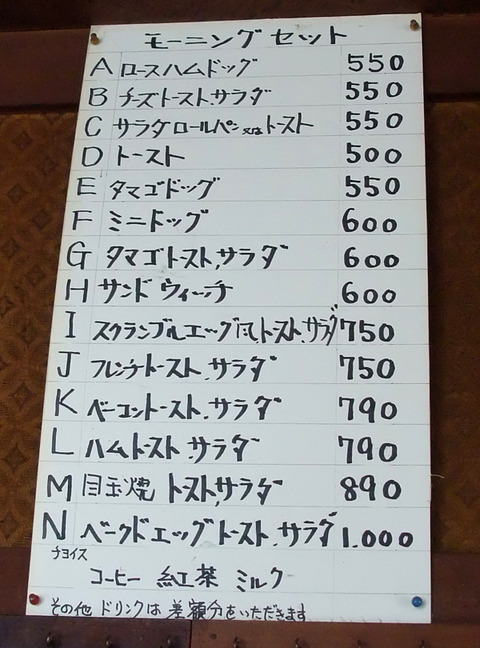 モーニングセット
A ロースハムドッグ 550
B チーズトースト.サラダ 550
C サラダロールパン又はトースト 550
D トースト 500
E タマゴドッグ 550
F ミニドッグ 600
G タマゴトースト.サラダ 600
H サンドウィーチ 600
I スクランブルエッグ風トースト.サラダ 750
J フレンチトースト.サラダ 750
K ベーコントースト.サラダ 790
L ハムトースト.サラダ 790
M 目玉焼 トースト.サラダ 890
N ベークドエッグトースト.サラダ 1.000
チョイス
コーヒー 紅茶 ミルク
その他 ドリンクは 差額分をいただきます